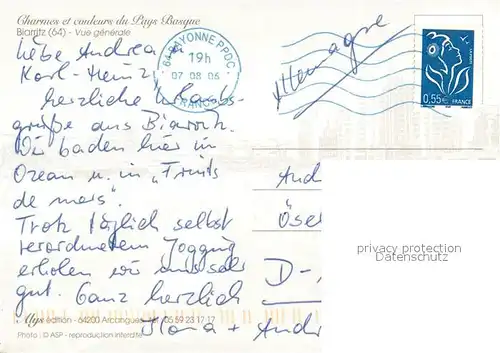 Charmes et couleurs du Pays Basque
Biarritz (64) - Vue générale
64 BAYONNE PPDC
19h
07 08 06
FRANCE
Allemagne
0,55 €
FRANCE
Liebe Andrea u.
Karl-Heinz,
herzliche Urlaubs-
grüße aus Biarritz.
Wir baden hier im
Ozean u. in "Fruits
de mers".
Trotz täglich selbst
verordnetem Jogging
erholen wir uns sehr
gut. Ganz herzlich
+ And
And
D-
privacy protection
Datenschutz
édition - 64200 Arcangues - tel 05 59 23 17 17
Photo : © ASP - reproduction interdite